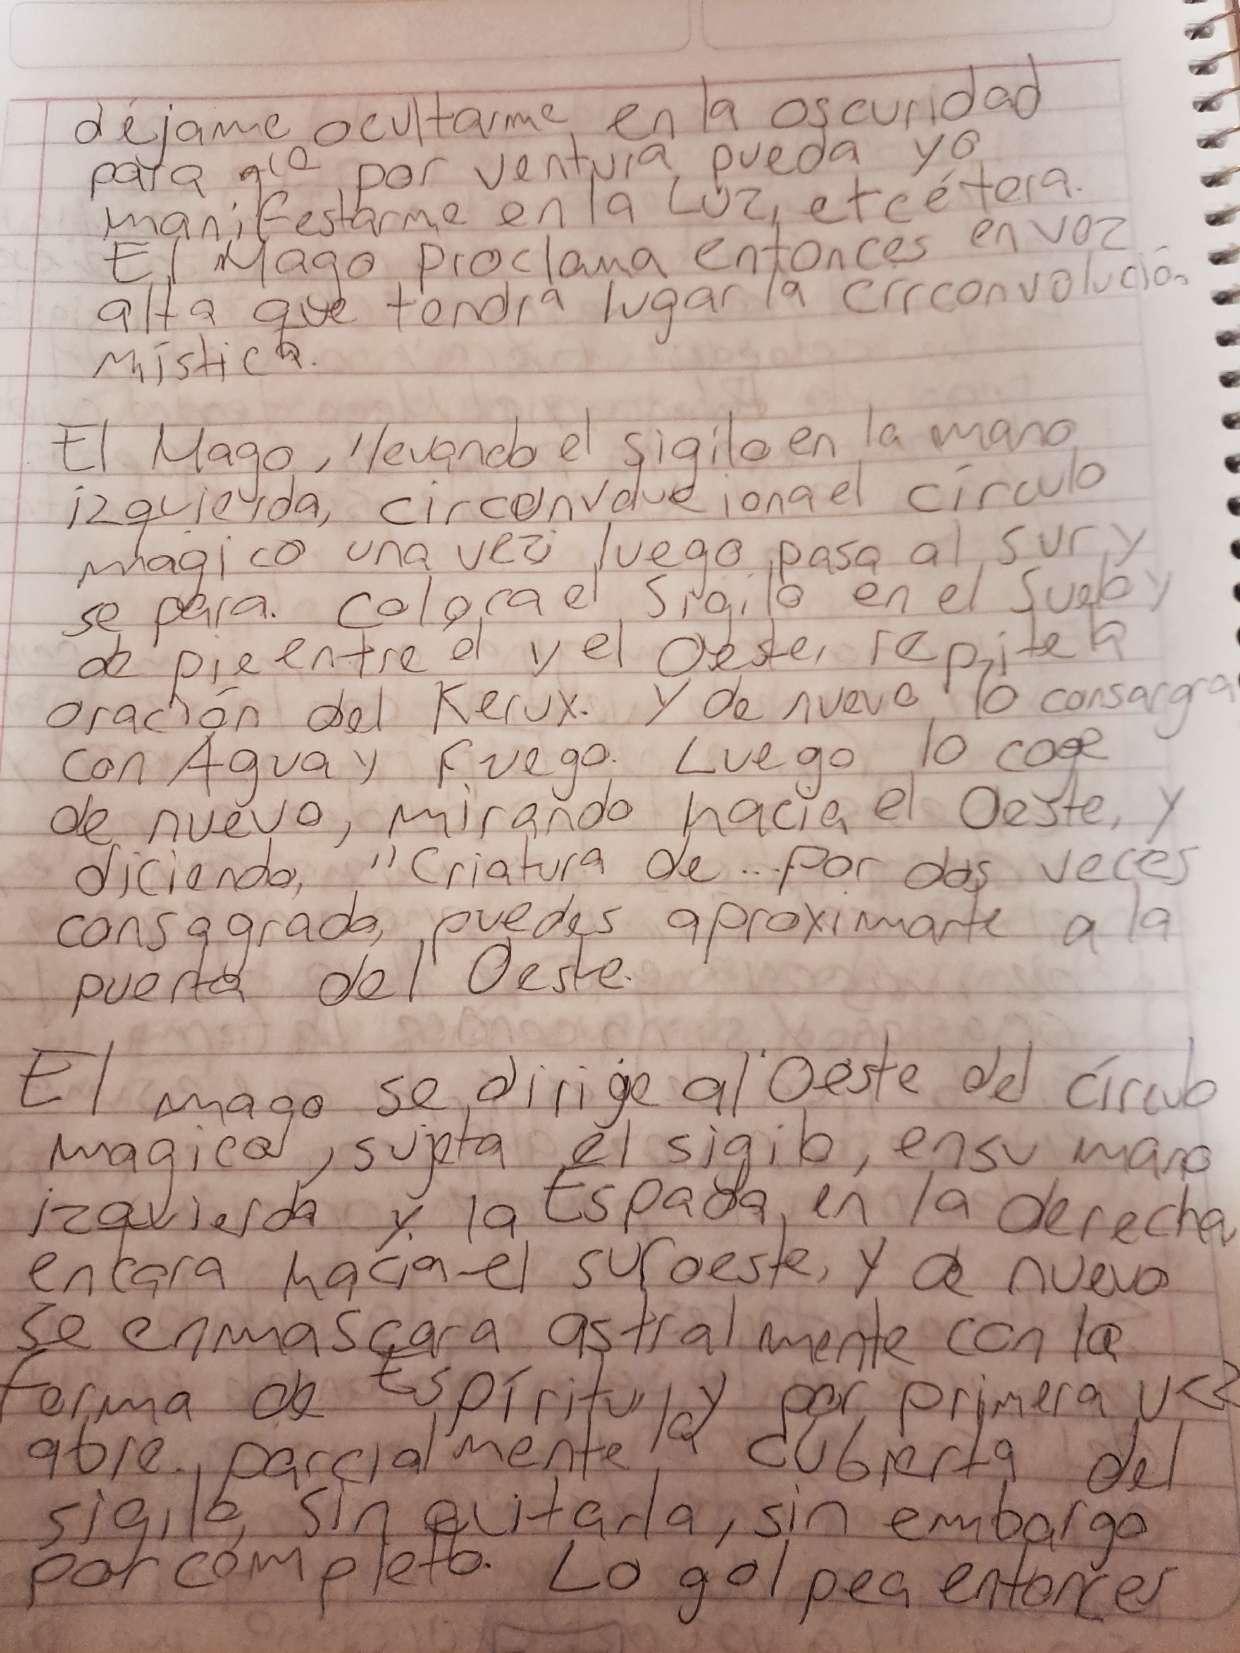 déjame ocultarme en la oscuridad
para que por ventura pueda yo
manifestarme en la Luz, etcétera.
El Mago proclama entonces en voz
alta que tendrá lugar la circonvolución
mística.
El Mago, llevando el sigilo en la mano
izquierda, circonvoluciona el círculo
magico una vez luego pasa al sur y
se para. Coloca el Sigilo en el Suelo y
de pie entre él y el Oeste, repite la
oración del Kerux. Y de nuevo lo consargra
con Agua y Fuego. Luego lo coge
de nuevo, mirando hacia el Oeste, y
diciendo, "Criatura de... Por dos veces
consagrada, puedes aproximarte a la
puerta del Oeste.
El mago se dirige al Oeste del círculo
magico, sujeta el sigilo, en su mano
izquierda y la Espada en la derecha
encara hacia el suroeste, y de nuevo
se enmascara astralmente con la
forma de Espíritu, y por primera vez
abre parcialmente la cubierta del
sigilo, sin quitarla, sin embargo
por completo. Lo golpea entonces